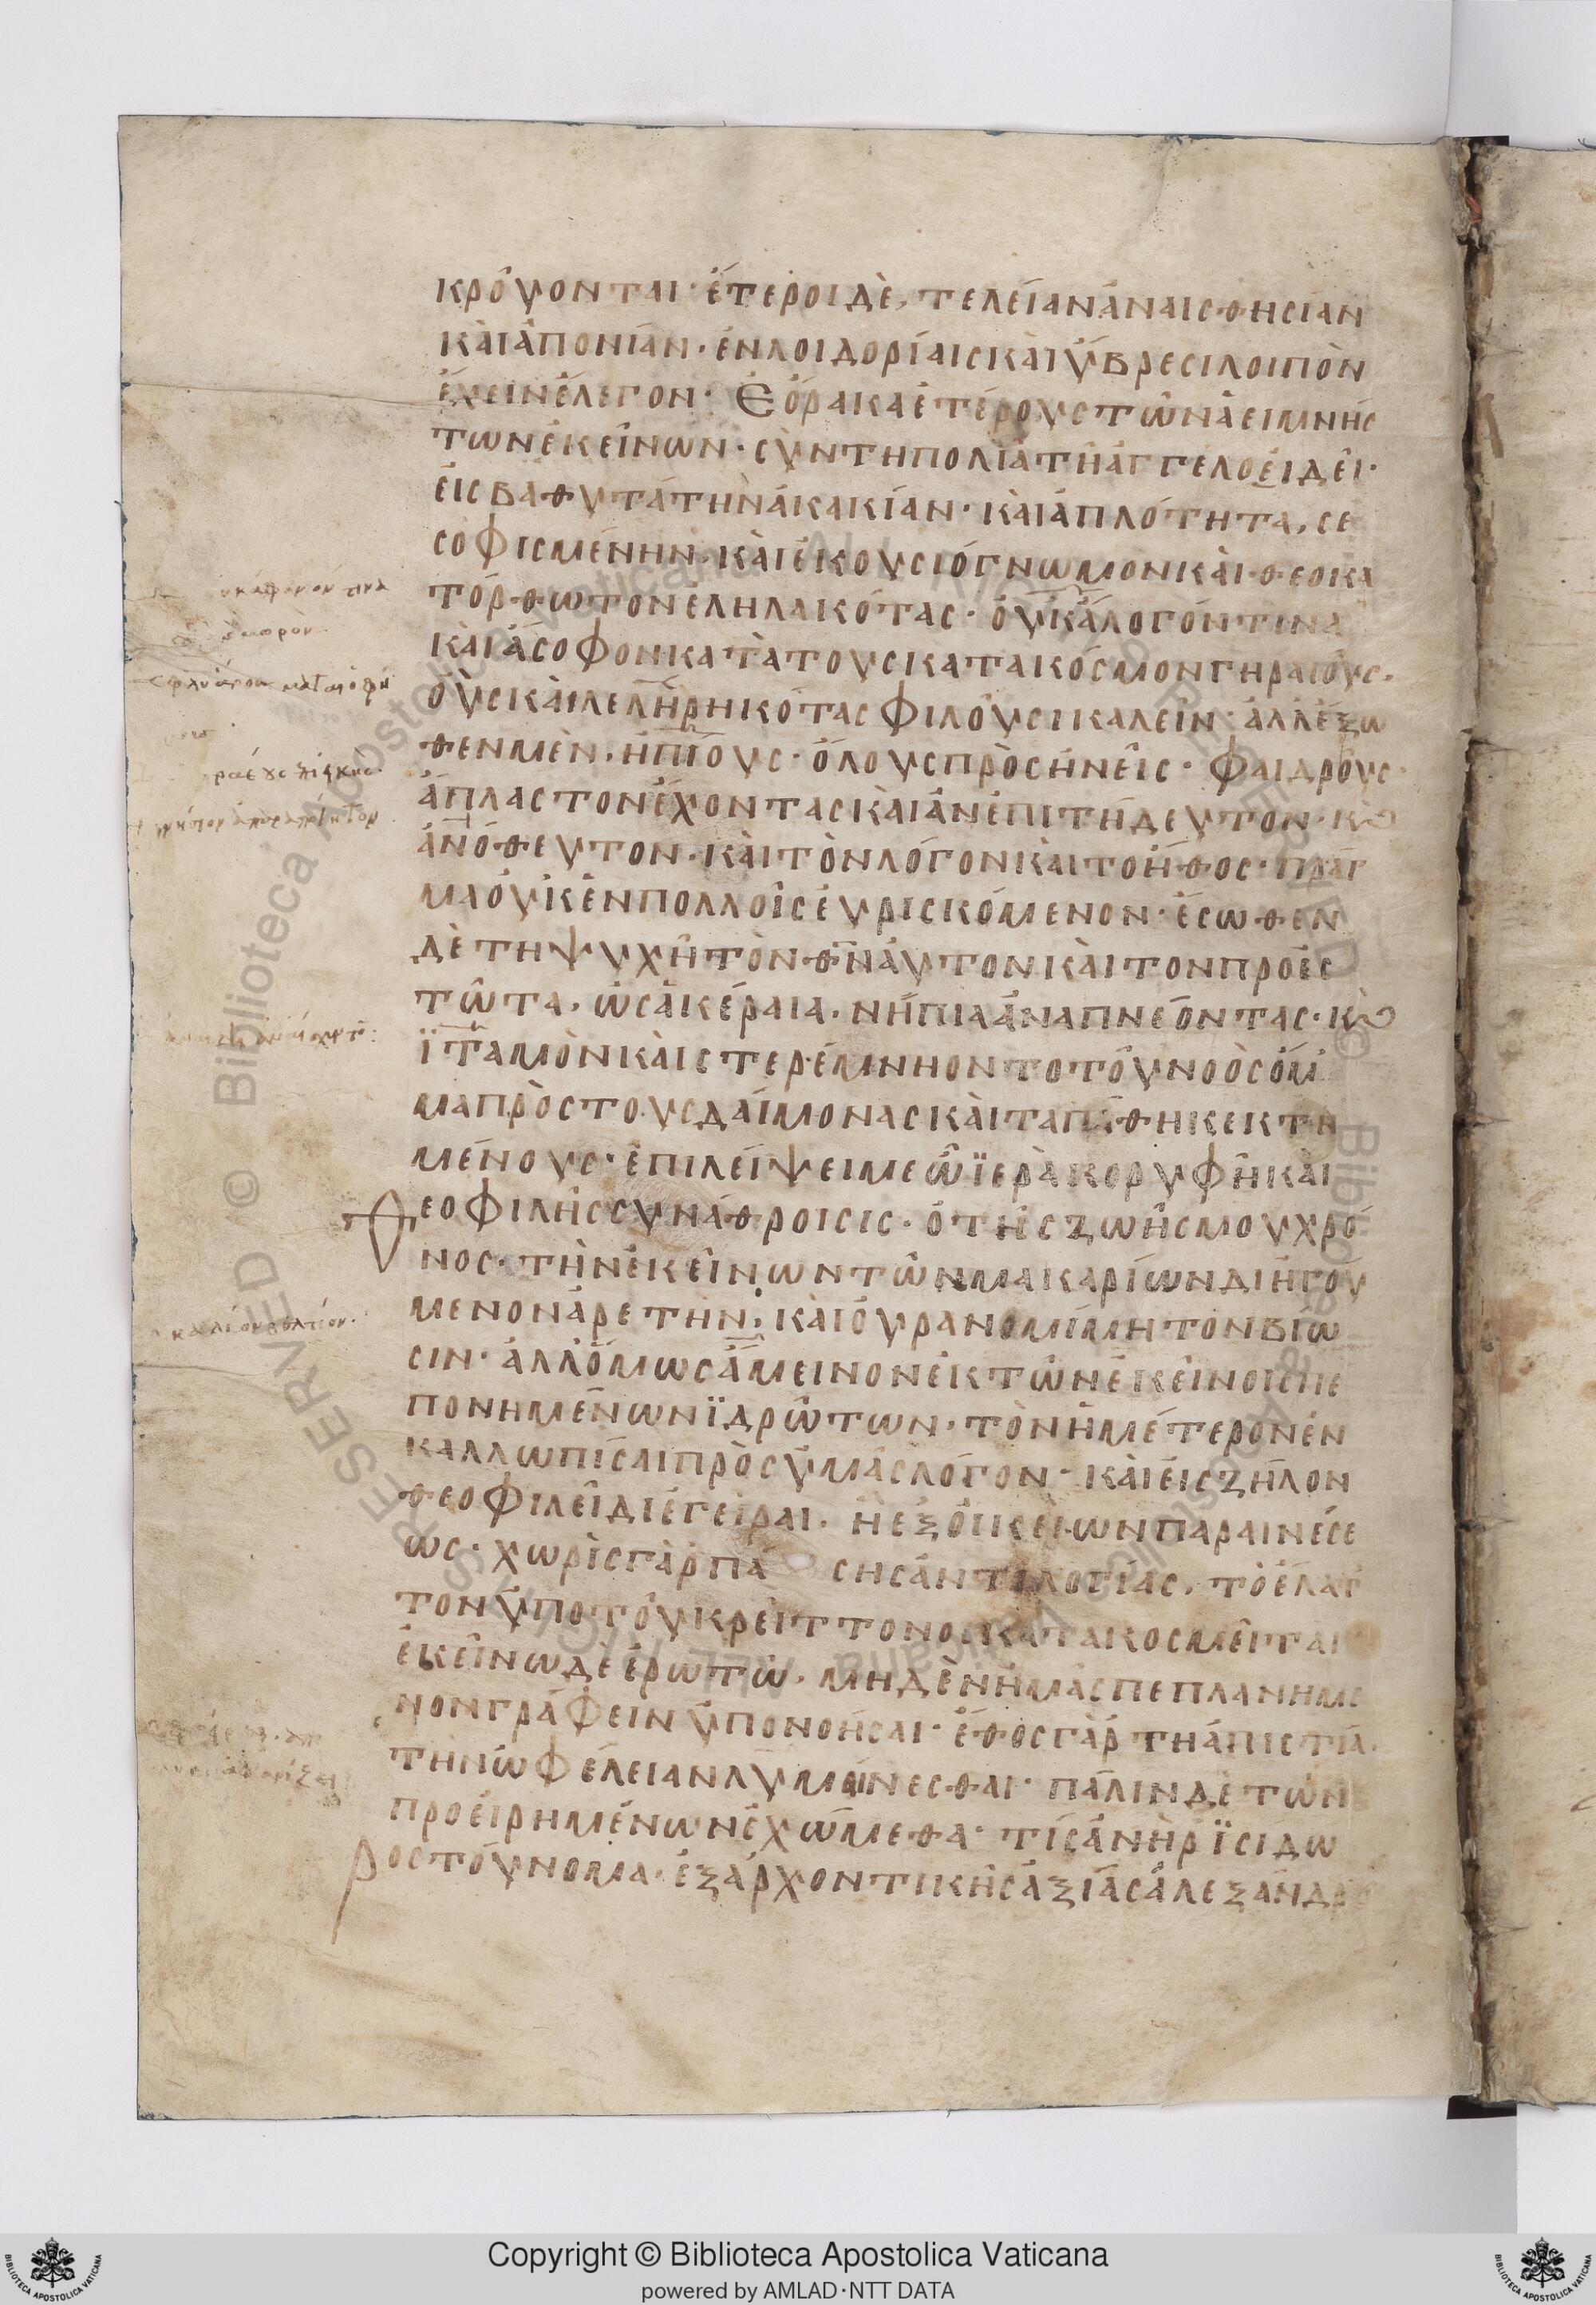 κρούονται· ἕτεροι δὲ, τελείαν ἀναισθησίαν
καὶ ἀπονίαν· ἐν λοιδορίαις καὶ ὕβρεσι λοιπὸν
ἔχειν ἔλεγον· Ἑόρακα ἑτέρους τῶν ἀειμνήσ
των ἐκείνων· σὺν τῆ πολιᾶ τῆ ἀγγελοείδει·
εἰς βαθυτάτην ἀκακίαν· καὶ ἁπλότητα, σε
σοφισμένην, καὶ ἑκουσιόγνωμον καὶ θεοκα
τόρθωτον ἐληλακότας· οὐκ ἄλογόν τινα
καὶ ἄσοφον κατὰ τους κατα κόσμον γηραιούς·
οὓς καὶ λεληρηκότας φιλοῦσι καλεῖν· ἀλλ' ἔξω
θεν μὲν, ἠπίους· ὅλους προσήνεῖς· φαιδρούς·
ἄπλαστον ἔχοντας καὶ ἀνεπιτήδευτον· κ(αὶ)
ἀνόθευτον· καὶ τὸν λόγον καὶ το ἦθος· πρᾶγ
μα οὐκ ἐν πολλοῖς εὑρισκόμενον· ἔσωθεν
δὲ τη ψυχῆ τὸν θν αὐτον καὶ τον προεσ
τῶτα, ὡς ἀκέραια, νήπια ἀναπνέοντας· κ(αὶ)
ϊταμὸν καὶ στερέμνηον το τοῦ νοὸς ὄμ
μα πρὸς τους δαίμονας καὶ τα πάθη κεκτη
μένους· ἐπιλείψει με ὦ ϊερὰ κορυφὴ καὶ
θεοφιλὴς συνάθροισις· ὁ τῆς ζωῆς μου χρό
νος· τὴν ἐκείνων τῶν μακαρίων διηγού
μενον ἀρετὴν, καὶ οὐρανομίμητον βίω
σιν· ἀλλ' ὅμως ἄμεινον ἐκ τῶν ἐκείνοις πε
πονημένων ϊδρώτων· τὸν ἡμέτερον ἐν
καλλωπίσαι πρὸς ὑμᾶς λόγον· καὶ εἰς ζῆλον
θεοφιλεῖ διεγεῖραι· ἢ ἐξ οἰκείων παραινέσε
ως· χωρὶς γὰρ πά σης ἀντιλογίας, τὸ ἔλατ
τον ὑπο τοῦ κρείττονος κατακοσμεῖται
ἐκεῖνω δὲ ἐρωτῶ· μηδὲν ἡμᾶς πεπλανημέ
νον γράφειν ὑπονοῆσαι· ἔθος γὰρ τη ἀπιστία
τὴν ὠφέλειαν λυμαίνεσθαι· πάλιν δὲ τῶν
προειρημένων ἐχώμεθα· τίς ἀνὴρ ϊσίδω
ρος τοὔνομα· ἐξ ἀρχοντικῆς ἀξίας ἀλεξανδρ